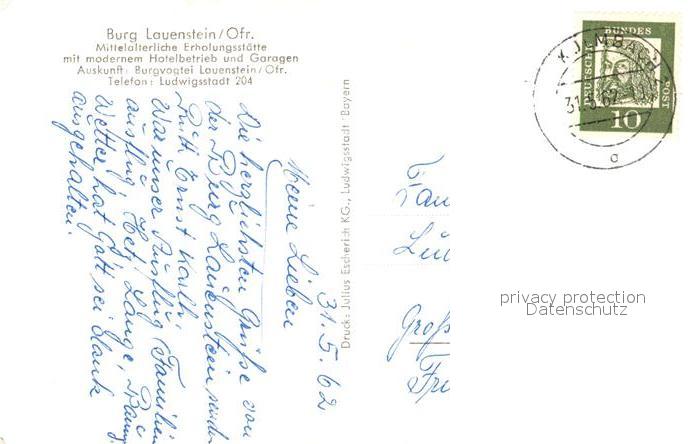 Burg Lauenstein/Ofr.
Mittelalterliche Erholungsstätte
mit modernem Hotelbetrieb und Garagen
Auskunft: Burgvogtei Lauenstein/Ofr.
Telefon: Ludwigsstadt 204
31.5.62
Meine Lieben
Die herzlichsten Grüße von
der Burg Lauenstein senden
Ernst Karl.
War unser Ausflug Familien
ausflug Lange,
Wetter hat Gott sei Dank
ausgehalten.
Druck: Julius Escherich KG., Ludwigsstadt Bayern
Groß
DEUTSCHE
BUNDES
POST
10
KULMBACH
31.5.62
a
privacy protection
Datenschutz